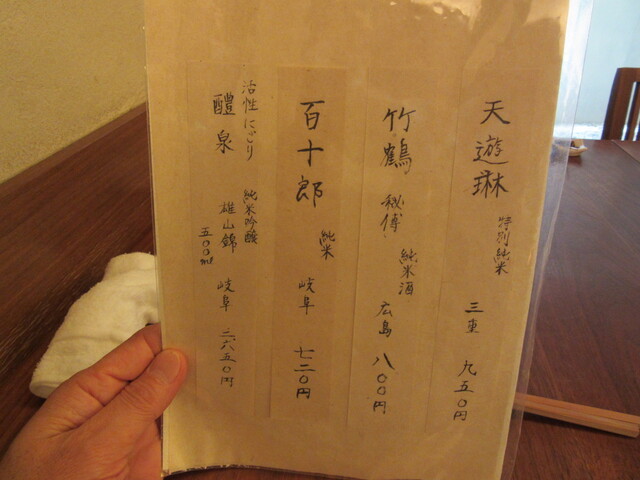 天遊琳 特別純米 三重 九五〇円
竹鶴 秘傳 純米酒 広島 八〇〇円
百十郎 純米 岐阜 七二〇円
活性にごり
醴泉 純米吟醸 雄山錦 岐阜 二六五〇円
五〇〇ml